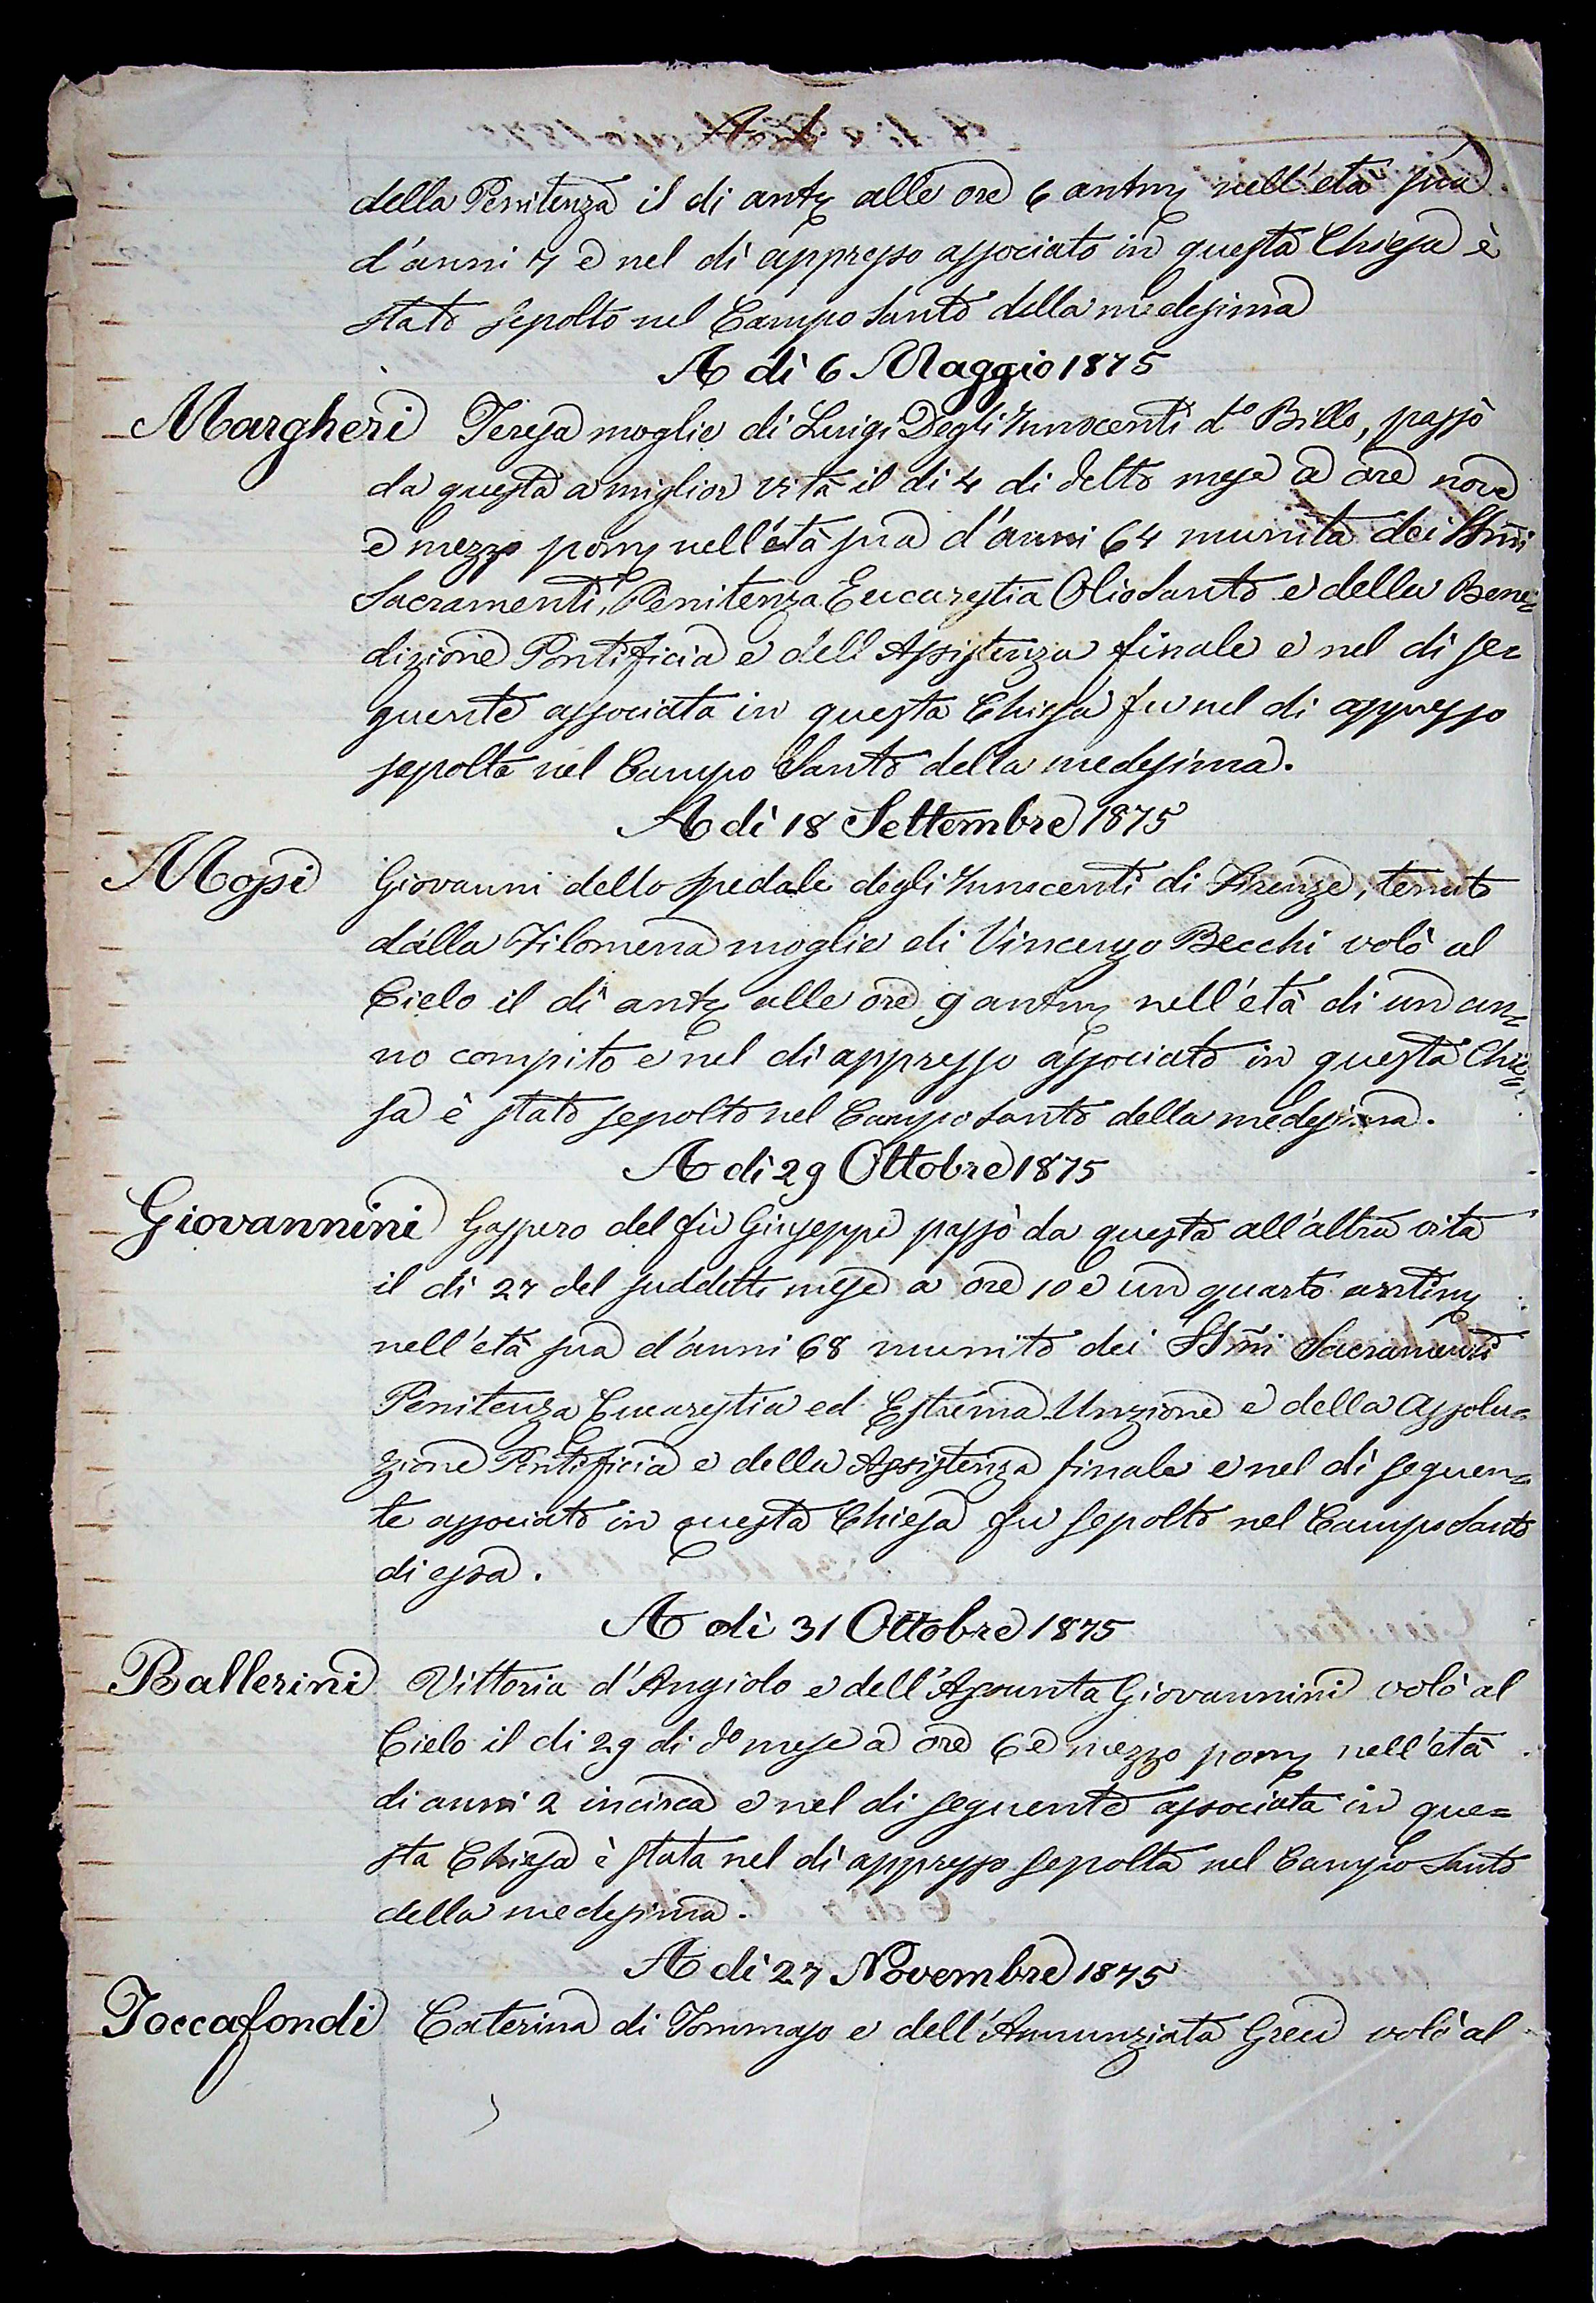 della Penitenza il di antẹ alle ore 6 antmẹ nell'età sua
d'anni 7 e nel dì appresso associato in questa Chiesa è
stato sepolto nel Campo Santo della medesima
A dì 6 Maggio 1875
Margheri Teresa moglie di Luigi Degli Innocenti d.º Billo, passò
da questa a miglior vita il di 4 di detto mese a ore nove
e mezzo pomẹ nell'età sua d'anni 64 munita dei SSm̃i
Sacramenti, Penitenza Eucarestia Olio Santo e della Bene=
dizione Pontificia e dell'Assistenza finale e nel di se=
guente associata in questa Chiesa fu nel di appresso
sepolta nel Campo Santo della medesima.
A dì 18 Settembre 1875
Mossi Giovanni dello Spedale degli Innocenti di Firenze, tenuto
dalla Filomena moglie di Vincenzo Becchi volò al
Cielo il dì antẹ alle ore 9 antmẹ nell'età di un an=
no compito e nel di appresso associato in questa Chie=
sa è stato sepolto nel Campo Santo della medesima.
A dì 29 Ottobre 1875
Giovannini Gaspero del fù Giuseppe passò da questa all'altra vita
il di 27 del suddetto mese a ore 10 e un quarto antimẹ
nell'età sua d'anni 68 munito dei SSm̃i Sacramenti
Penitenza Eucarestia ed Estrema Unzione e della Assolu=
zione Pontificia e della Assistenza finale e nel dì seguen=
te associato in questa Chiesa fu sepolto nel Campo Santo
di essa.
A dì 31 Ottobre 1875
Ballerini Vittoria d'Angiolo e dell'Assunta Giovannini volò al
Cielo il di 29 di dº mese a ore 6 e mezzo pomẹ nell'età
di anni 2 incirca e nel di seguente associata in que=
sta Chiesa è stata nel dì appresso sepolta nel Campo Santo
della medesima.
A dì 27 Novembre 1875
Toccafondi Caterina di Tommaso e dell'Annunziata Greci volò al